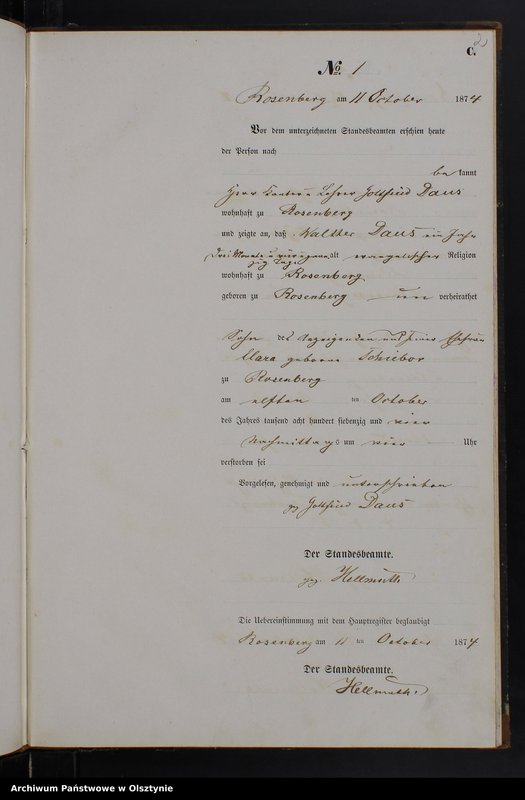 2
C.
No. 1
Rosenberg am 11 October 1874
Vor dem unterzeichneten Standesbeamten erschien heute
der Person nach
be kannt
Herr Kantor u Lehrer Gottfried Daus
wohnhaft zu Rosenberg
und zeigte an, daß Walther Daus ein Jahr
drei Monate u alt evangelischer Religion
zig Tage
wohnhaft zu Rosenberg
geboren zu Rosenberg un verheirathet
Sohn des Anzeigenden und seiner Ehefrau
Clara geborene Schiebor
zu Rosenberg
am elften ten October
des Jahres tausend acht hundert siebenzig und vier
Nachmittags um vier Uhr
verstorben sei
Vorgelesen, genehmigt und unterschrieben
gz Gottfried Daus
Der Standesbeamte.
gez. Hellmuth
Die Uebereinstimmung mit dem Hauptregister beglaubigt
Rosenberg am 11 ten October 1874
Der Standesbeamte.
Hellmuth
Archiwum Państwowe w Olsztynie